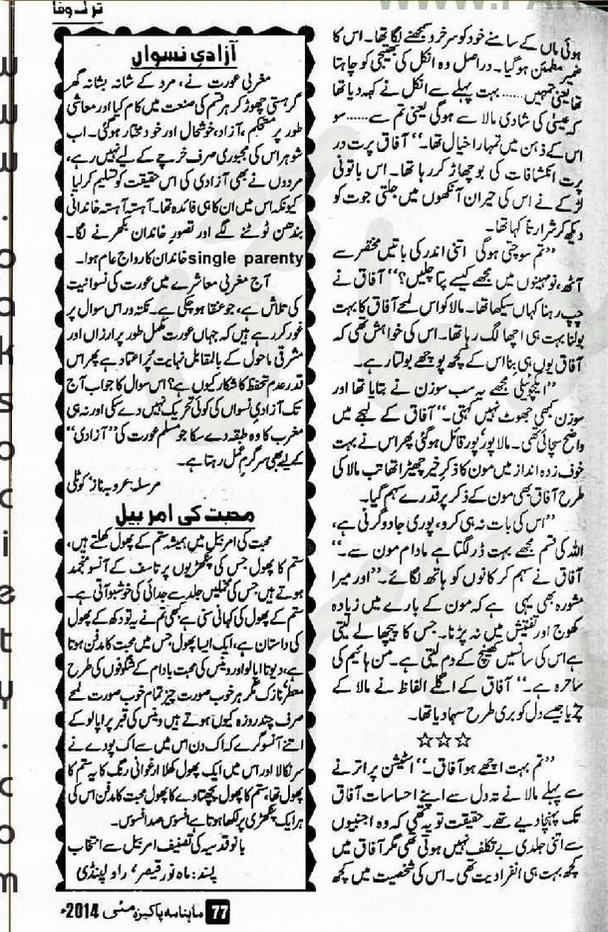 ترک وفا
ہوئی ماں کے سامنے خود کو سرخرو سمجھنے لگا تھا۔ اس کا
ضمیر مطمئن ہوگیا۔ دراصل وہ انکل کی بھتیجی کو چاہتا
تھا یعنی تمہیں...... بہت پہلے سے انکل نے کہہ دیا تھا
کہ عیسیٰ کی شادی مالا سے ہوگی یعنی تم سے...... سو
اس کے ذہن میں تمہارا خیال تھا۔‘‘ آفاق پرت در
پرت انکشافات کی بوچھاڑ کر رہا تھا۔ اس باتونی
لڑکے نے اس کی حیران آنکھوں میں جلتی جوت کو
دیکھ کر شرارتاً کہا تھا۔
’’تم سوچتی ہوگی اتنی اندر کی باتیں مختصر سے
آٹھ، نو مہینوں میں مجھے کیسے پتا چلیں؟‘‘ آفاق نے
چپ رہنا کہاں سیکھا تھا۔ مالا کو اس لمحے آفاق کا بہت
بولنا بہت ہی اچھا لگ رہا تھا۔ اس کی خواہش تھی کہ
آفاق یوں ہی بنا اس کے کچھ پوچھے بولتا رہے۔
’’ایکچوئلی مجھے یہ سب سوزن نے بتایا تھا اور
سوزن کبھی جھوٹ نہیں کہتی۔‘‘ آفاق کے لہجے میں
واضح سچائی تھی۔ مالا پور پور قائل ہوگئی پھر اس نے بہت
خوف زدہ انداز میں مون کا ذکر خیر چھیڑا تھا تب مالا کی
طرح آفاق بھی مون کے ذکر پر قدرے سہم گیا۔
’’اس کی بات نہ ہی کرو، پوری جادوگرنی ہے،
اللہ کی قسم مجھے بہت ڈر لگتا ہے مادام مون سے۔‘‘
آفاق نے سہم کر کانوں کو ہاتھ لگائے۔ ’’اور میرا
مشورہ بھی یہی ہے کہ مون کے بارے میں زیادہ
کھوج اور تفتیش میں نہ پڑنا۔ جس کا پیچھا لے لیتی
ہے اس کی سانسیں کھینچ کے دم لیتی ہے۔ من ہائیم کی
ساحرہ ہے۔‘‘ آفاق کے اگلے الفاظ نے مالا کے
چڑیا جیسے دل کو بری طرح سہما دیا تھا۔
☆☆☆
’’تم بہت اچھے ہو آفاق۔‘‘ اسٹیشن پر اترنے
سے پہلے مالا نے تہ دل سے اپنے احساسات آفاق
تک پہنچا دیے تھے۔ حقیقت تو یہ تھی کہ وہ اجنبیوں
سے اتنی جلدی بے تکلف نہیں ہوتی تھی مگر آفاق میں
کچھ بہت ہی انفرادیت تھی۔ اس کی شخصیت میں کچھ
آزادی نسواں
مغربی عورت نے، مرد کے شانہ بشانہ گھر
گرہستی چھوڑ کر ہر قسم کی صنعت میں کام کیا اور معاشی
طور پر مستحکم، آزاد، خوشحال اور خود مختار ہوگئی۔ اب
شوہر اس کی مجبوری صرف خرچے کے لیے نہیں رہے،
مردوں نے بھی آزادی کی اس حقیقت کو تسلیم کر لیا
کیونکہ اس میں ان کا ہی فائدہ تھا۔ آہستہ آہستہ خاندانی
بندھن ٹوٹنے لگے اور تصور خاندان بکھرنے لگا۔
single parenty خاندان کا رواج عام ہوا۔
آج مغربی معاشرے میں عورت کی نسوانیت
کی تلاش ہے، جو عنقا ہو چکی ہے۔ نکتہ ور اس سوال پر
غور کر رہے ہیں کہ جہاں عورت مکمل طور پر ارزاں اور
مشرقی ماحول کے بالمقابل نہایت پُراعتماد ہے پھر اس
قدر عدم تحفظ کا شکار کیوں ہے؟ اس سوال کا جواب آج
تک آزادی نسواں کی کوئی تحریک نہیں دے سکی اور نہ ہی
مغرب کا وہ طبقہ دے سکا جو مسلم عورت کی ’’آزادی‘‘
کے لیے بھی سرگرم عمل رہتا ہے۔
مرسلہ: عروبہ ناز کوٹلی
محبت کی امر بیل
محبت کی امر بیل میں ہمیشہ ستم کے پھول کھلتے ہیں،
ستم کا پھول جس کی پنکھڑیوں پر تاسف کے آنسو منجمد
ہوتے ہیں جس کی مخملیں جلد سے جدائی کی خوشبو آتی ہے۔
ستم کے پھول کی کہانی سنی ہے کبھی تم نے یہ تو دکھ کے پھول
کی داستان ہے، ایک ایسا پھول جس میں محبت کا مدفن ہوتا
ہے، دیوتا اپالو اور وینس کی محبت بادام کے شگوفوں کی طرح
معطر نازک مگر ہر خوب صورت چیز تمام خوب صورت لمحے
صرف چند روزہ کیوں ہوتے ہیں وینس کی قبر پر اپالو کے
اتنے آنسو گرے کہ اک دن اس میں سے اک پودے نے
سر نکالا اور اس میں ایک پھول کھلا ارغوانی رنگ کا یہ ستم کا
پھول تھا، ستم کا پھول پچھتاوے کا پھول محبت کا مدفن اس کی
ہر ایک پنکھڑی پر لکھا ہوتا ہے افسوس صد افسوس۔
بانو قدسیہ کی تصنیف امر بیل سے انتخاب
پسند: ماہ نور قیصر، راولپنڈی
77 ماہنامہ پاکیزہ مئی 2014ء